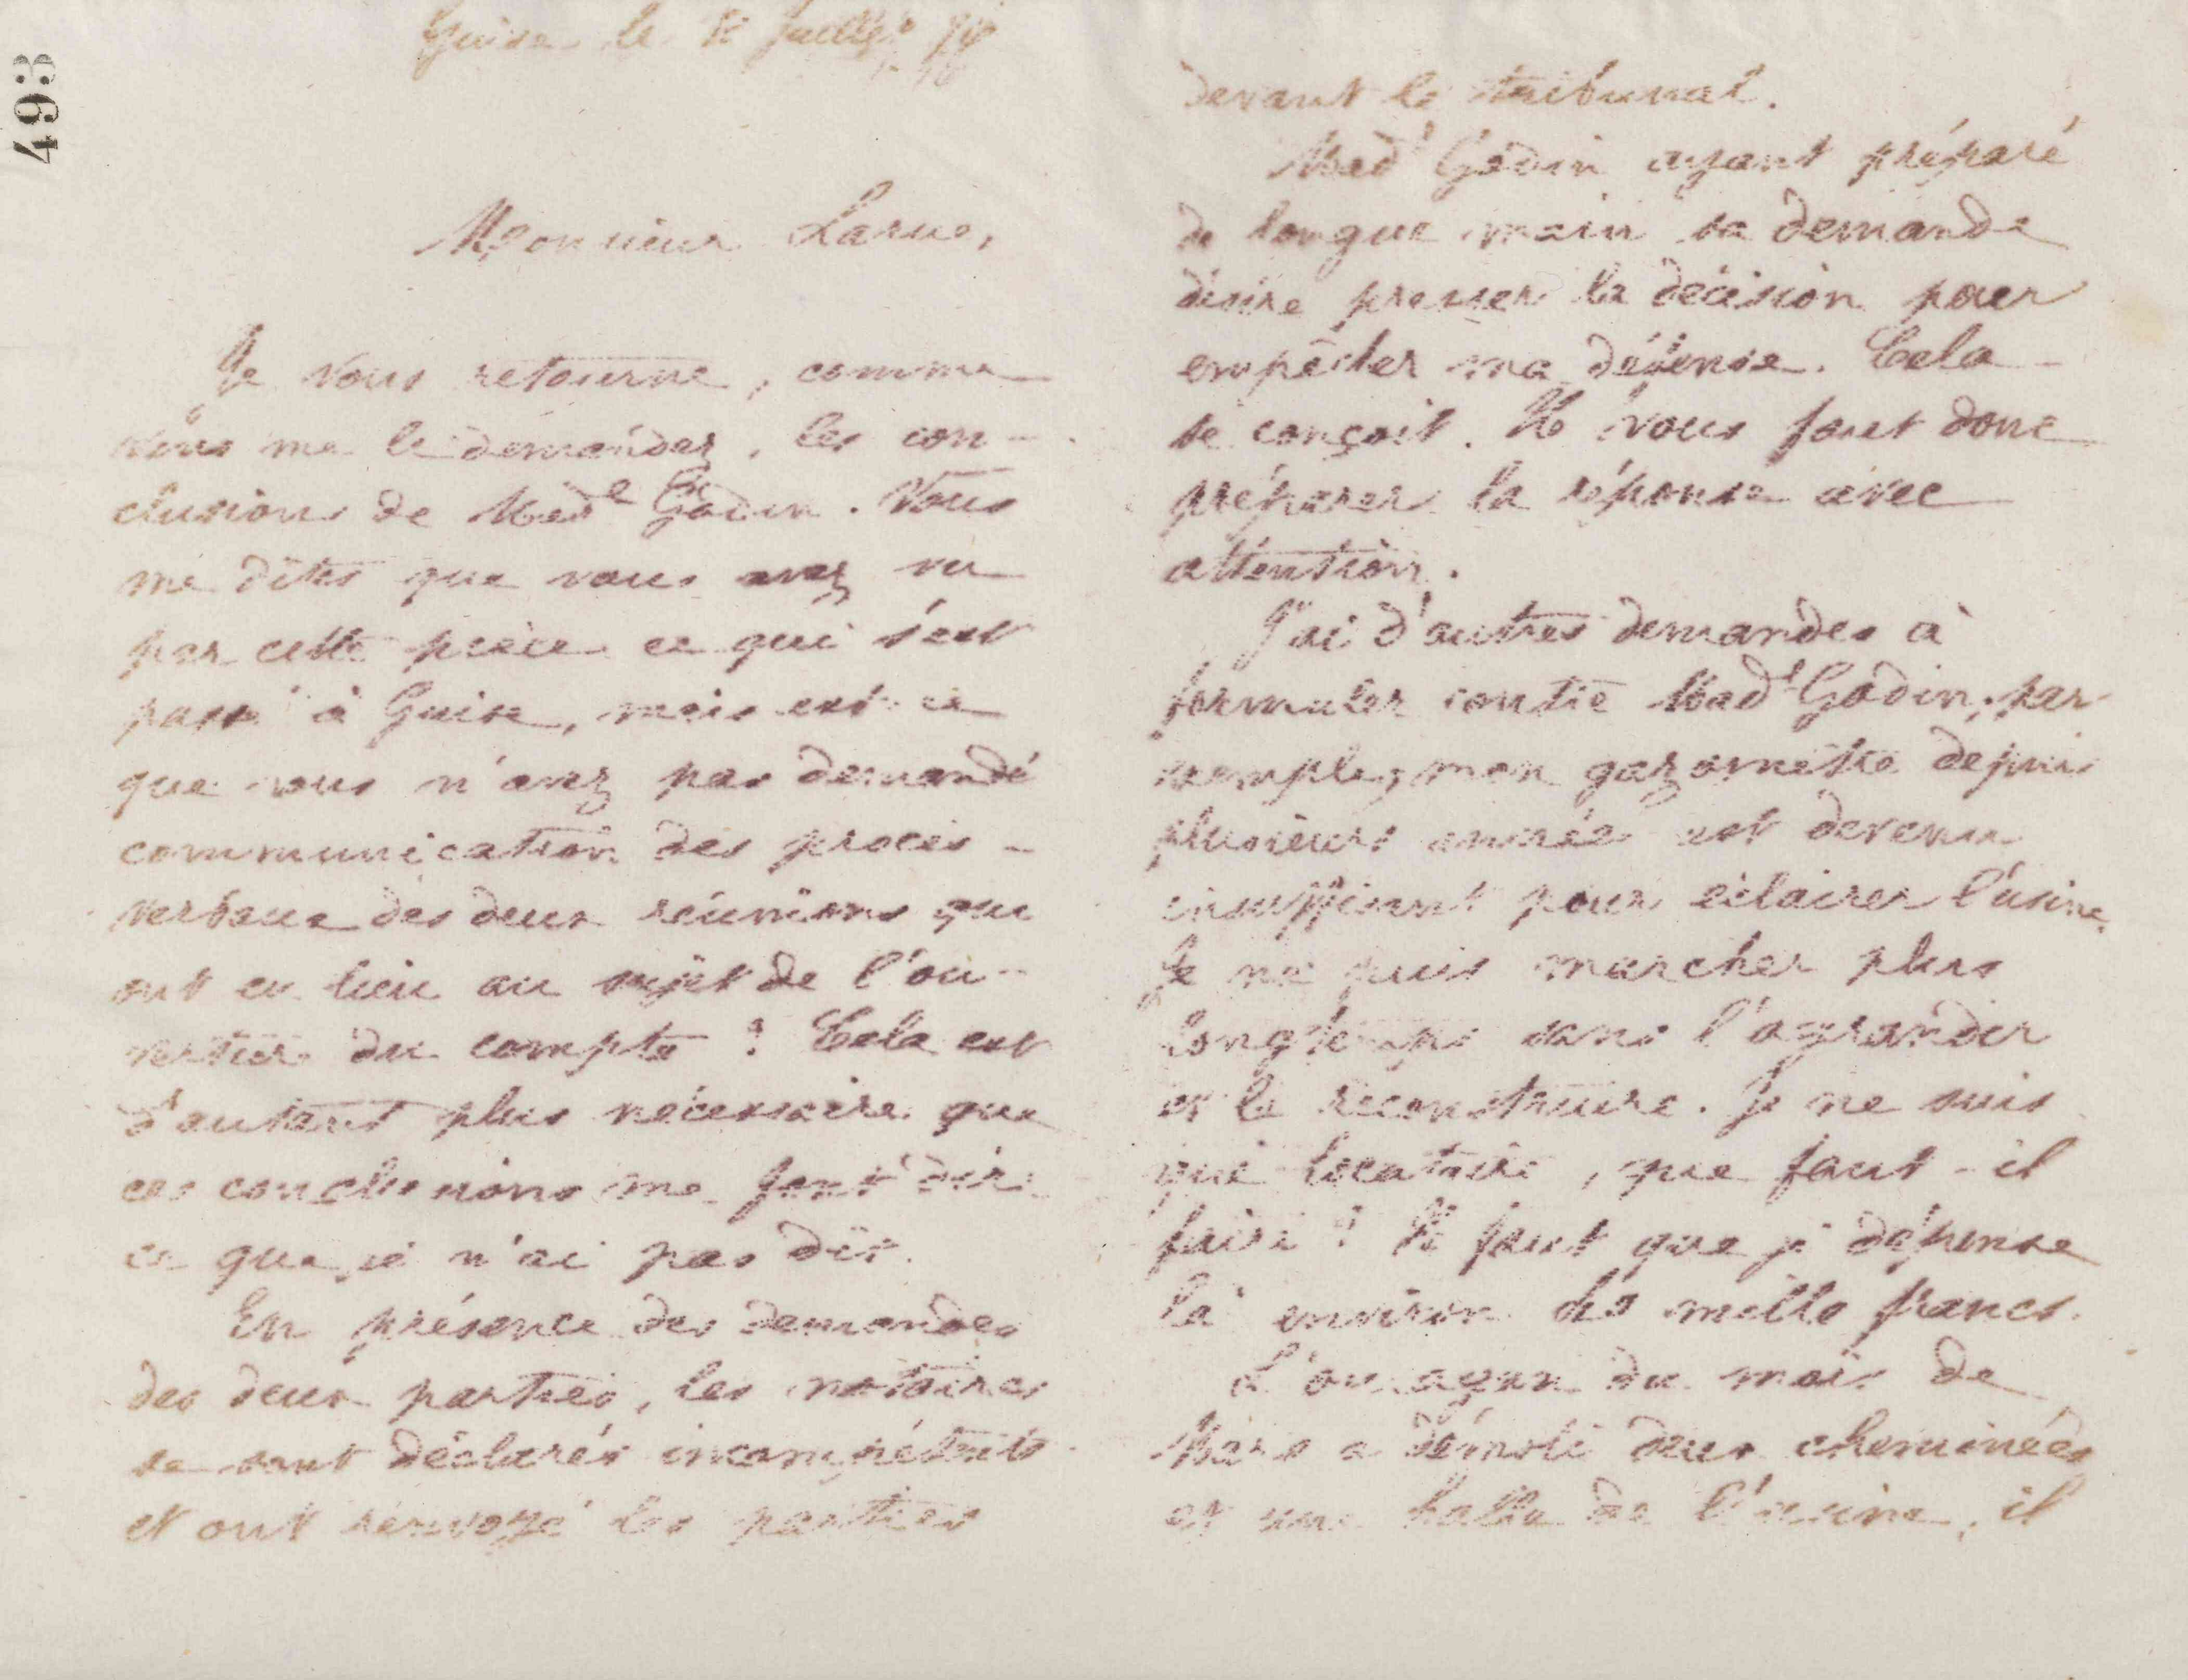 493
Guise le Juillet 76
Monsieur Larue,
Je vous retourne, comme
vous me le demandez, les con-
clusions de Made Godin. Vous
me dîtes que vous avez vu
par cette pièce ce qui s'est
passé à Guise, mais est-ce
que vous n'avez pas demandé
communication des procès-
verbaux des deux réunions qui
ont eu lieu au sujet de l'ou-
verture du compte ? Cela est
d'autant plus nécessaire que
ces conclusions me font dire
ce que je n'ai pas dit.
En présence des demandes
des deux parties, les notaires
se sont déclarés incompétents
et ont renvoyé les parties
devant le tribunal.
Made Godin ayant préparé
de longue main sa demande
désire presser la décision pour
empêcher ma défense. Cela
se conçoit. Il vous faut donc
préparer la réponse avec
attention.
J'ai d'autres demandes à
formuler contre Made Godin; par
exemple, mon gazomètre depuis
plusieurs années est devenu
insuffisant pour éclairer l'usine.
Je ne puis marcher plus
longtemps sans l'agrandir
et le reconstruire. Je ne suis
que locataire, que faut-il
faire ? Il faut que je dépense
là environ mille francs.
L'ouragan du mois de
Mars a démoli deux cheminées
et une halle de l'usine, il